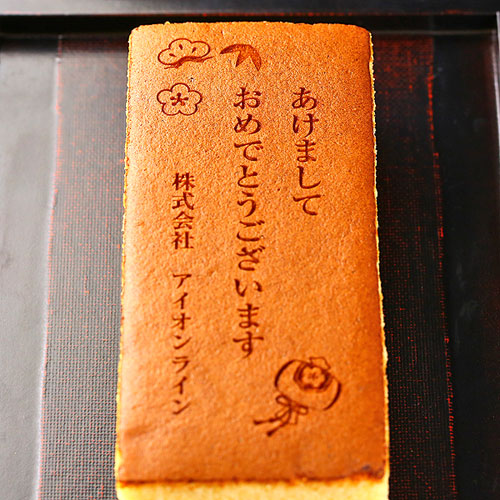 あけまして
おめでとうございます
株式会社 アイオンライン